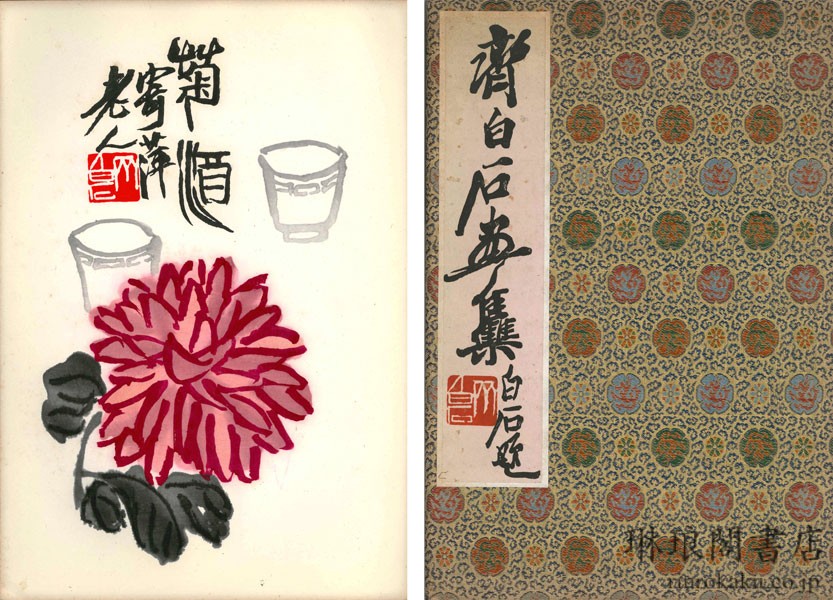 菊酒
寄萍
老人
齊白石画集
白石題
琳琅閣書店
rinrokaku.co.jp